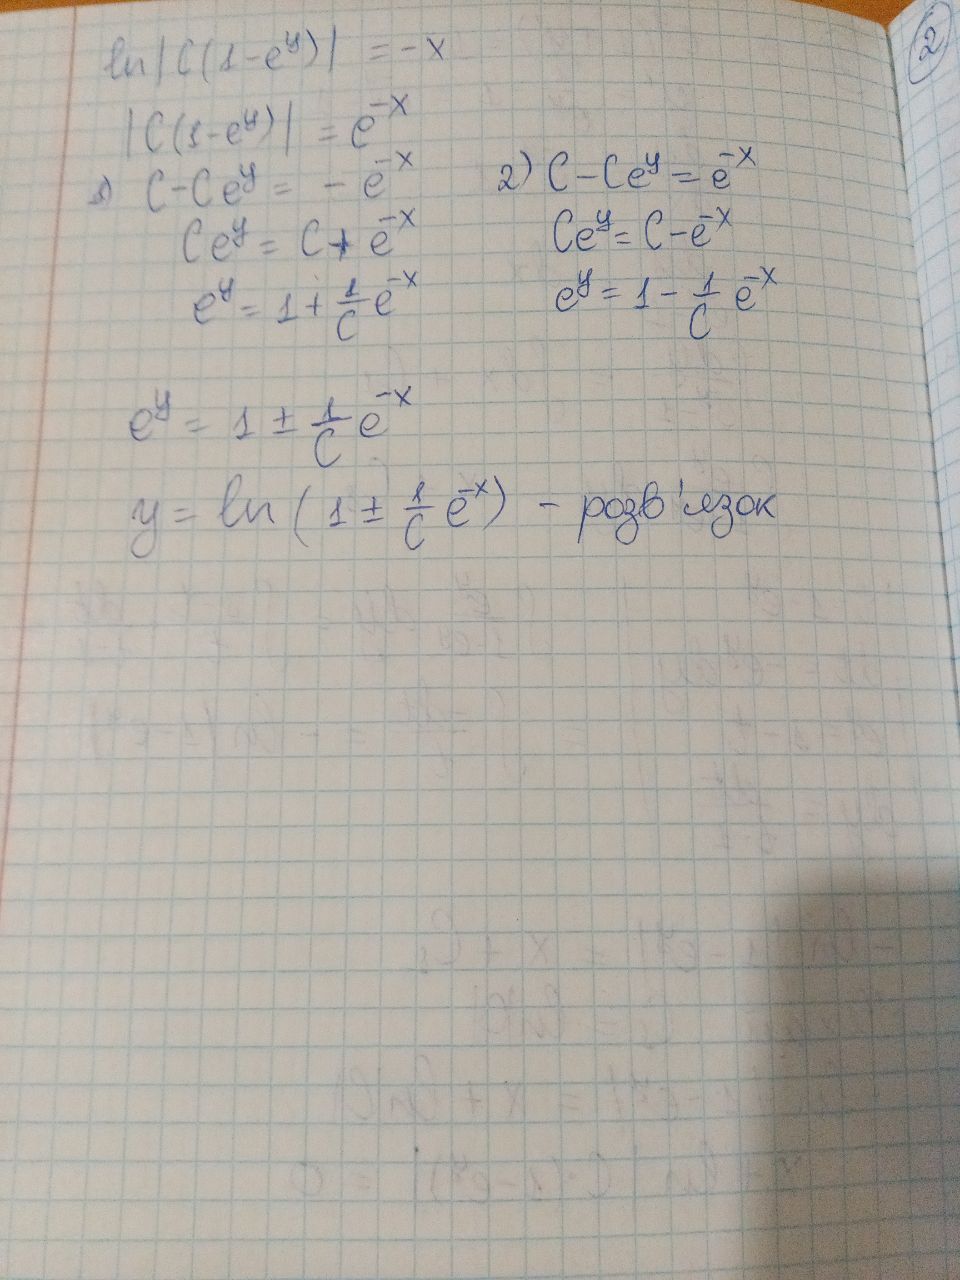 2
ln|C(1-e^y)| = -x
|C(1-e^y)| = e^{-x}
1) C-Ce^y = -e^{-x}
Ce^y = C+e^{-x}
e^y = 1+\frac{1}{C}e^{-x}
2) C-Ce^y = e^{-x}
Ce^y = C-e^{-x}
e^y = 1-\frac{1}{C}e^{-x}
e^y = 1±\frac{1}{C}e^{-x}
y = ln(1±\frac{1}{C}e^{-x}) - розв'язок